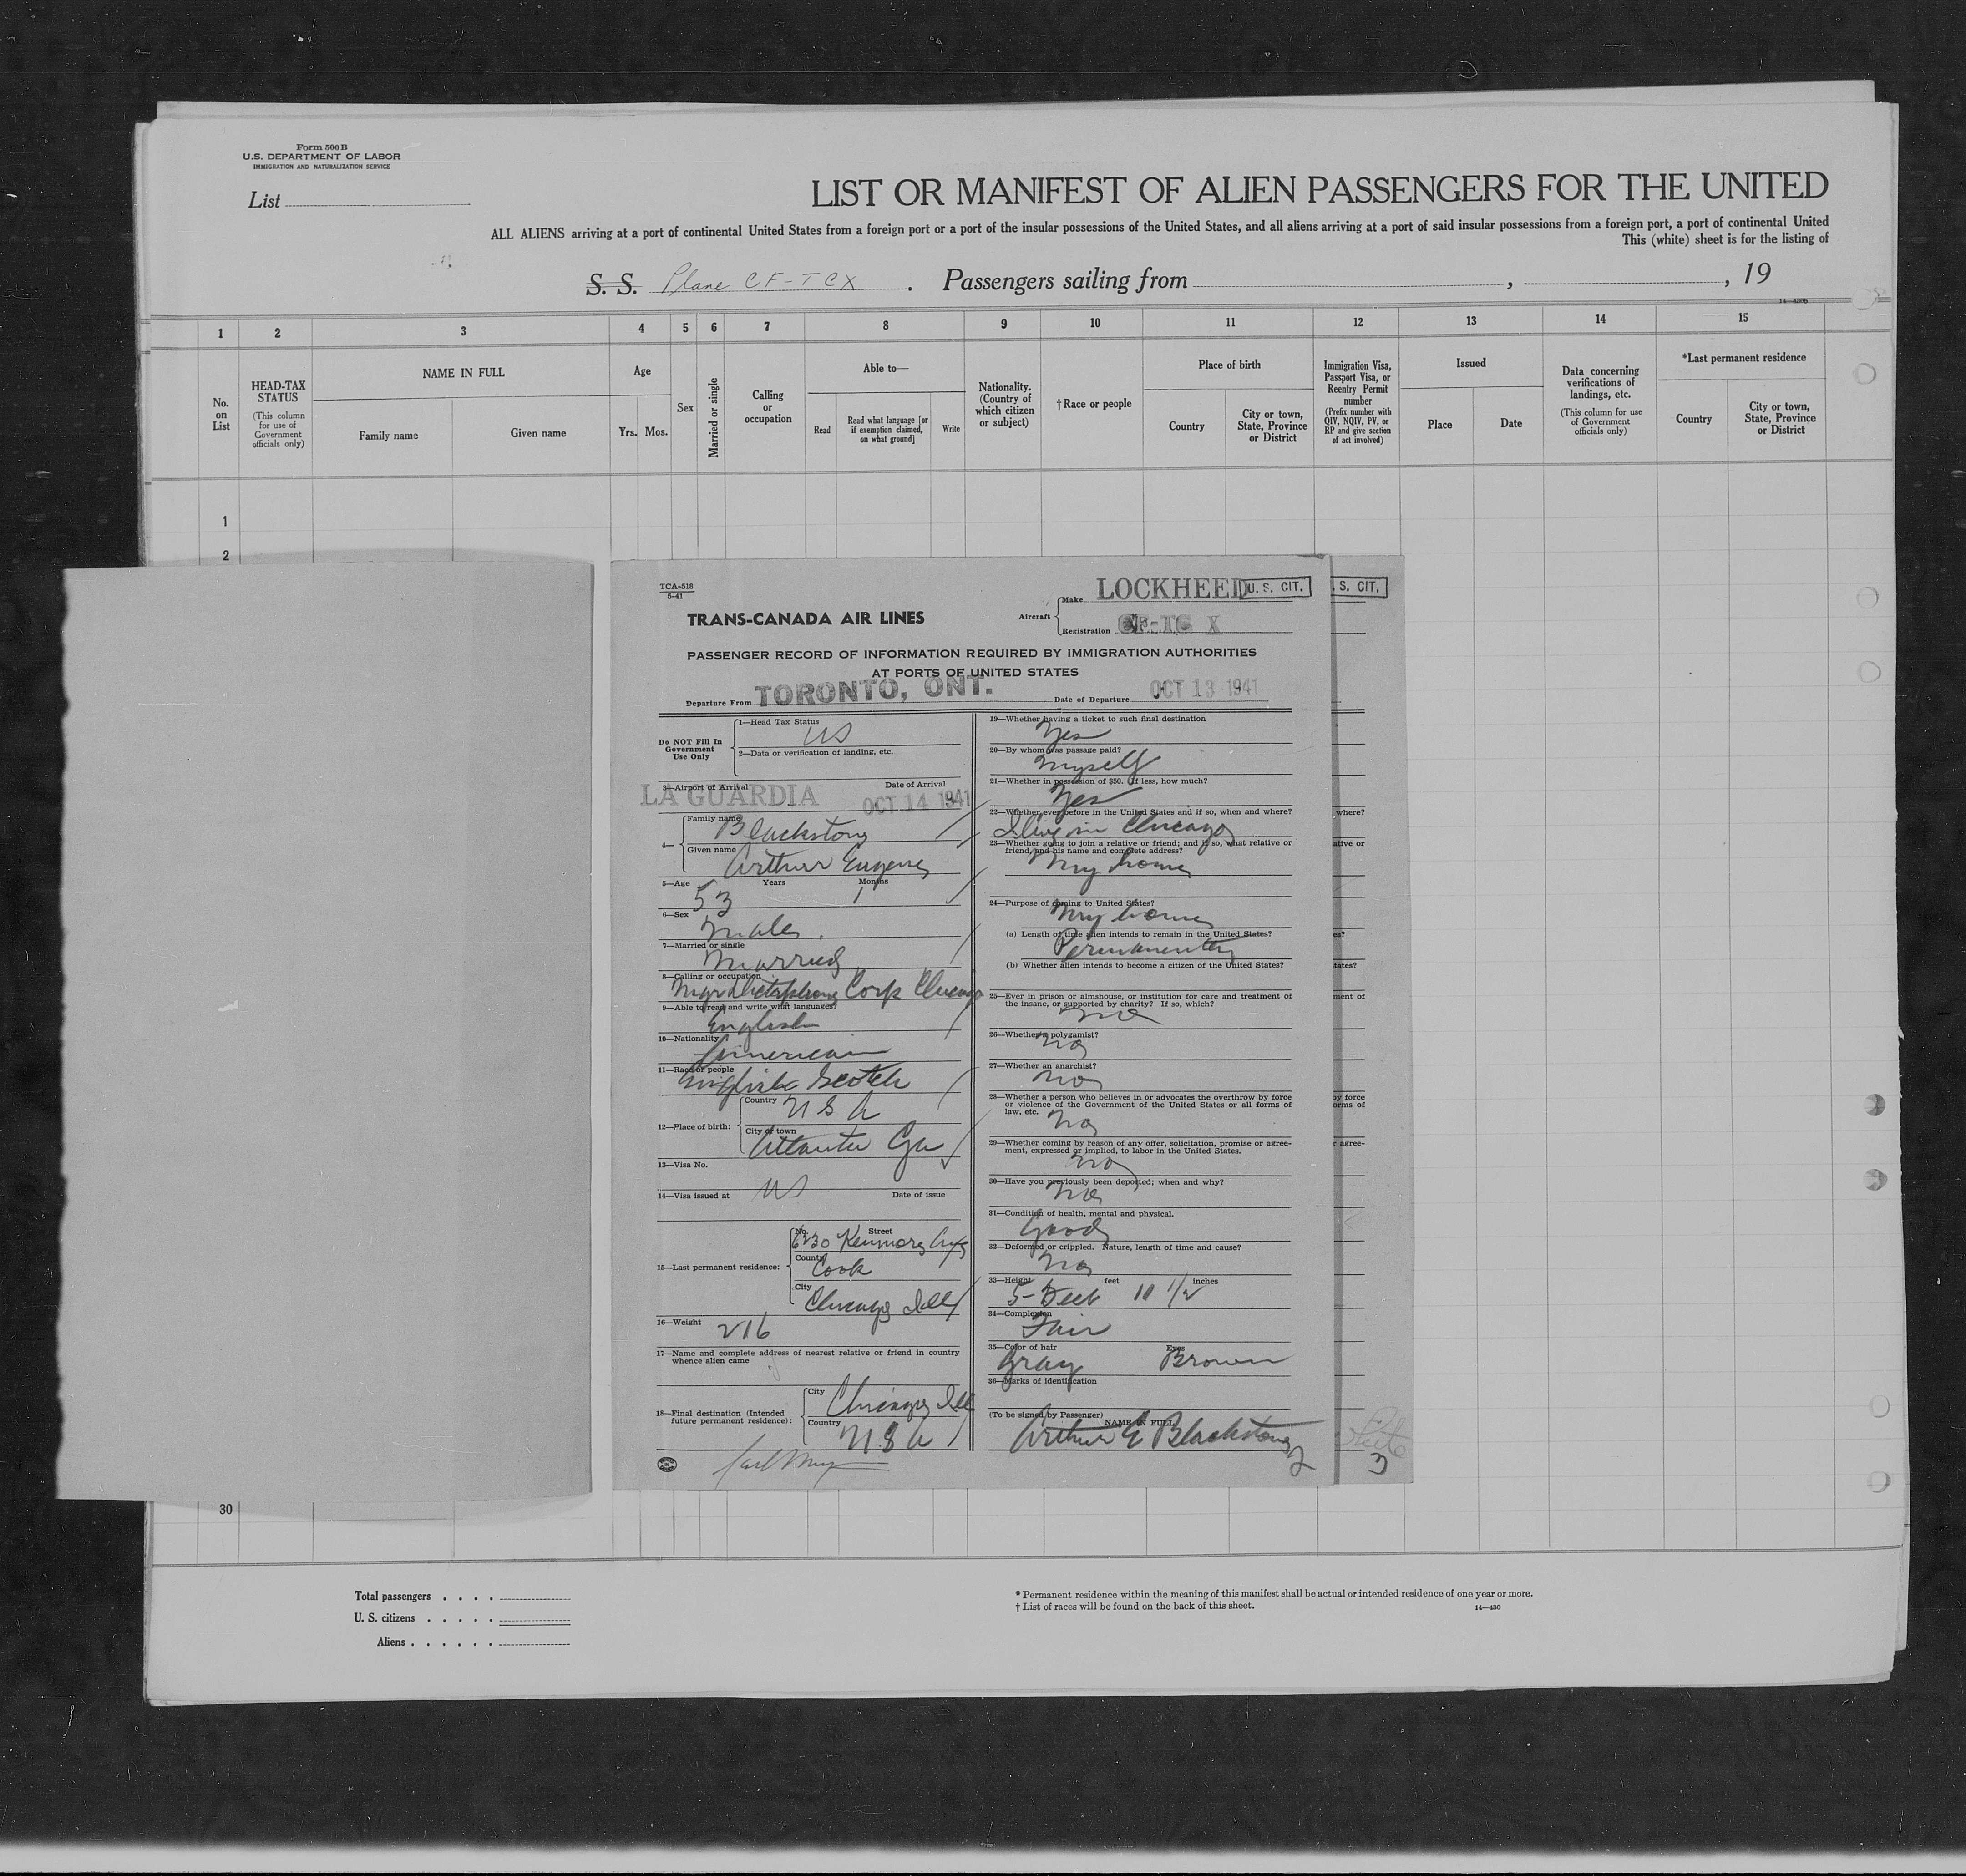 Form 500B
U.S. DEPARTMENT OF LABOR
IMMIGRATION AND NATURALIZATION SERVICE
List
LIST OR MANIFEST OF ALIEN PASSENGERS FOR THE UNITED
ALL ALIENS arriving at a port of continental United States from a foreign port or a port of the insular possessions of the United States, and all aliens arriving at a port of said insular possessions from a foreign port, a port of continental United
This (white) sheet is for the listing of
S. S. Plane CF-TCX. Passengers sailing from , , 19
1 2 3 4 5 6 7 8 9 10 11 12 13 14 15
No. on List
HEAD-TAX STATUS
(This column for use of Government officials only)
NAME IN FULL
Family name Given name
Age
Yrs. Mos.
Sex
Married or single
Calling or occupation
Able to—
Read
Read what language [or if exemption claimed, on what ground]
Write
Nationality. (Country of which citizen or subject)
†Race or people
Place of birth
Country
City or town, State, Province or District
Immigration Visa, Passport Visa, or Reentry Permit number
(Prefix number with QIV, NQIV, PV, or RP and give section of act involved)
Issued
Place Date
Data concerning verifications of landings, etc.
(This column for use of Government officials only)
*Last permanent residence
Country
City or town, State, Province or District
1
2
TCA-518
5-41
TRANS-CANADA AIR LINES
Aircraft
Make LOCKHEED
U. S. CIT.
S. CIT.
Registration
PASSENGER RECORD OF INFORMATION REQUIRED BY IMMIGRATION AUTHORITIES
AT PORTS OF UNITED STATES
Departure From TORONTO, ONT. Date of Departure OCT 13 1941
Do NOT Fill In Government Use Only
1—Head Tax Status
US
2—Data or verification of landing, etc.
3—Airport of Arrival Date of Arrival
LA GUARDIA OCT 14 1941
4—
Family name Blackstone
Given name Arthur Eugene
5—Age Years Months
53 1
6—Sex
Male
7—Married or single
Married
8—Calling or occupation
Mgr Dictaphone Corp Chicago
9—Able to read and write what languages?
English
10—Nationality
American
11—Race or people
English Scotch
12—Place of birth:
Country USA
City or town
Atlanta Ga
13—Visa No.
US
14—Visa issued at Date of issue
15—Last permanent residence:
No. Street
6230 Kenmore Ave
County
Cook
City
Chicago Ill
16—Weight
216
17—Name and complete address of nearest relative or friend in country
whence alien came
18—Final destination (Intended
future permanent residence):
City Chicago Ill
Country
USA
19—Whether having a ticket to such final destination
Yes
20—By whom was passage paid?
Myself
21—Whether in possession of $50. If less, how much?
Yes
22—Whether ever before in the United States and if so, when and where?
I live in Chicago
23—Whether going to join a relative or friend; and if so, what relative or
friend, and his name and complete address?
My home
24—Purpose of coming to United States?
My home
(a) Length of time alien intends to remain in the United States?
Permanently
(b) Whether alien intends to become a citizen of the United States?
25—Ever in prison or almshouse, or institution for care and treatment of
the insane, or supported by charity? If so, which?
No
26—Whether a polygamist?
No
27—Whether an anarchist?
No
28—Whether a person who believes in or advocates the overthrow by force
or violence of the Government of the United States or all forms of
law, etc.
No
29—Whether coming by reason of any offer, solicitation, promise or agree-
ment, expressed or implied, to labor in the United States.
No
30—Have you previously been deported; when and why?
No
31—Condition of health, mental and physical.
Good
32—Deformed or crippled. Nature, length of time and cause?
No
33—Height feet inches
5 Feet 10 1/2
34—Complexion
Fair
35—Color of hair Eyes
Gray Brown
36—Marks of identification
(To be signed by Passenger)
NAME IN FULL
Arthur E Blackstone
2
where?
ative or
es?
tates?
ment of
by force
orms of
r agree-
3
30
Total passengers . . . .
U. S. citizens . . . . .
Aliens . . . . . .
* Permanent residence within the meaning of this manifest shall be actual or intended residence of one year or more.
† List of races will be found on the back of this sheet.
14—430